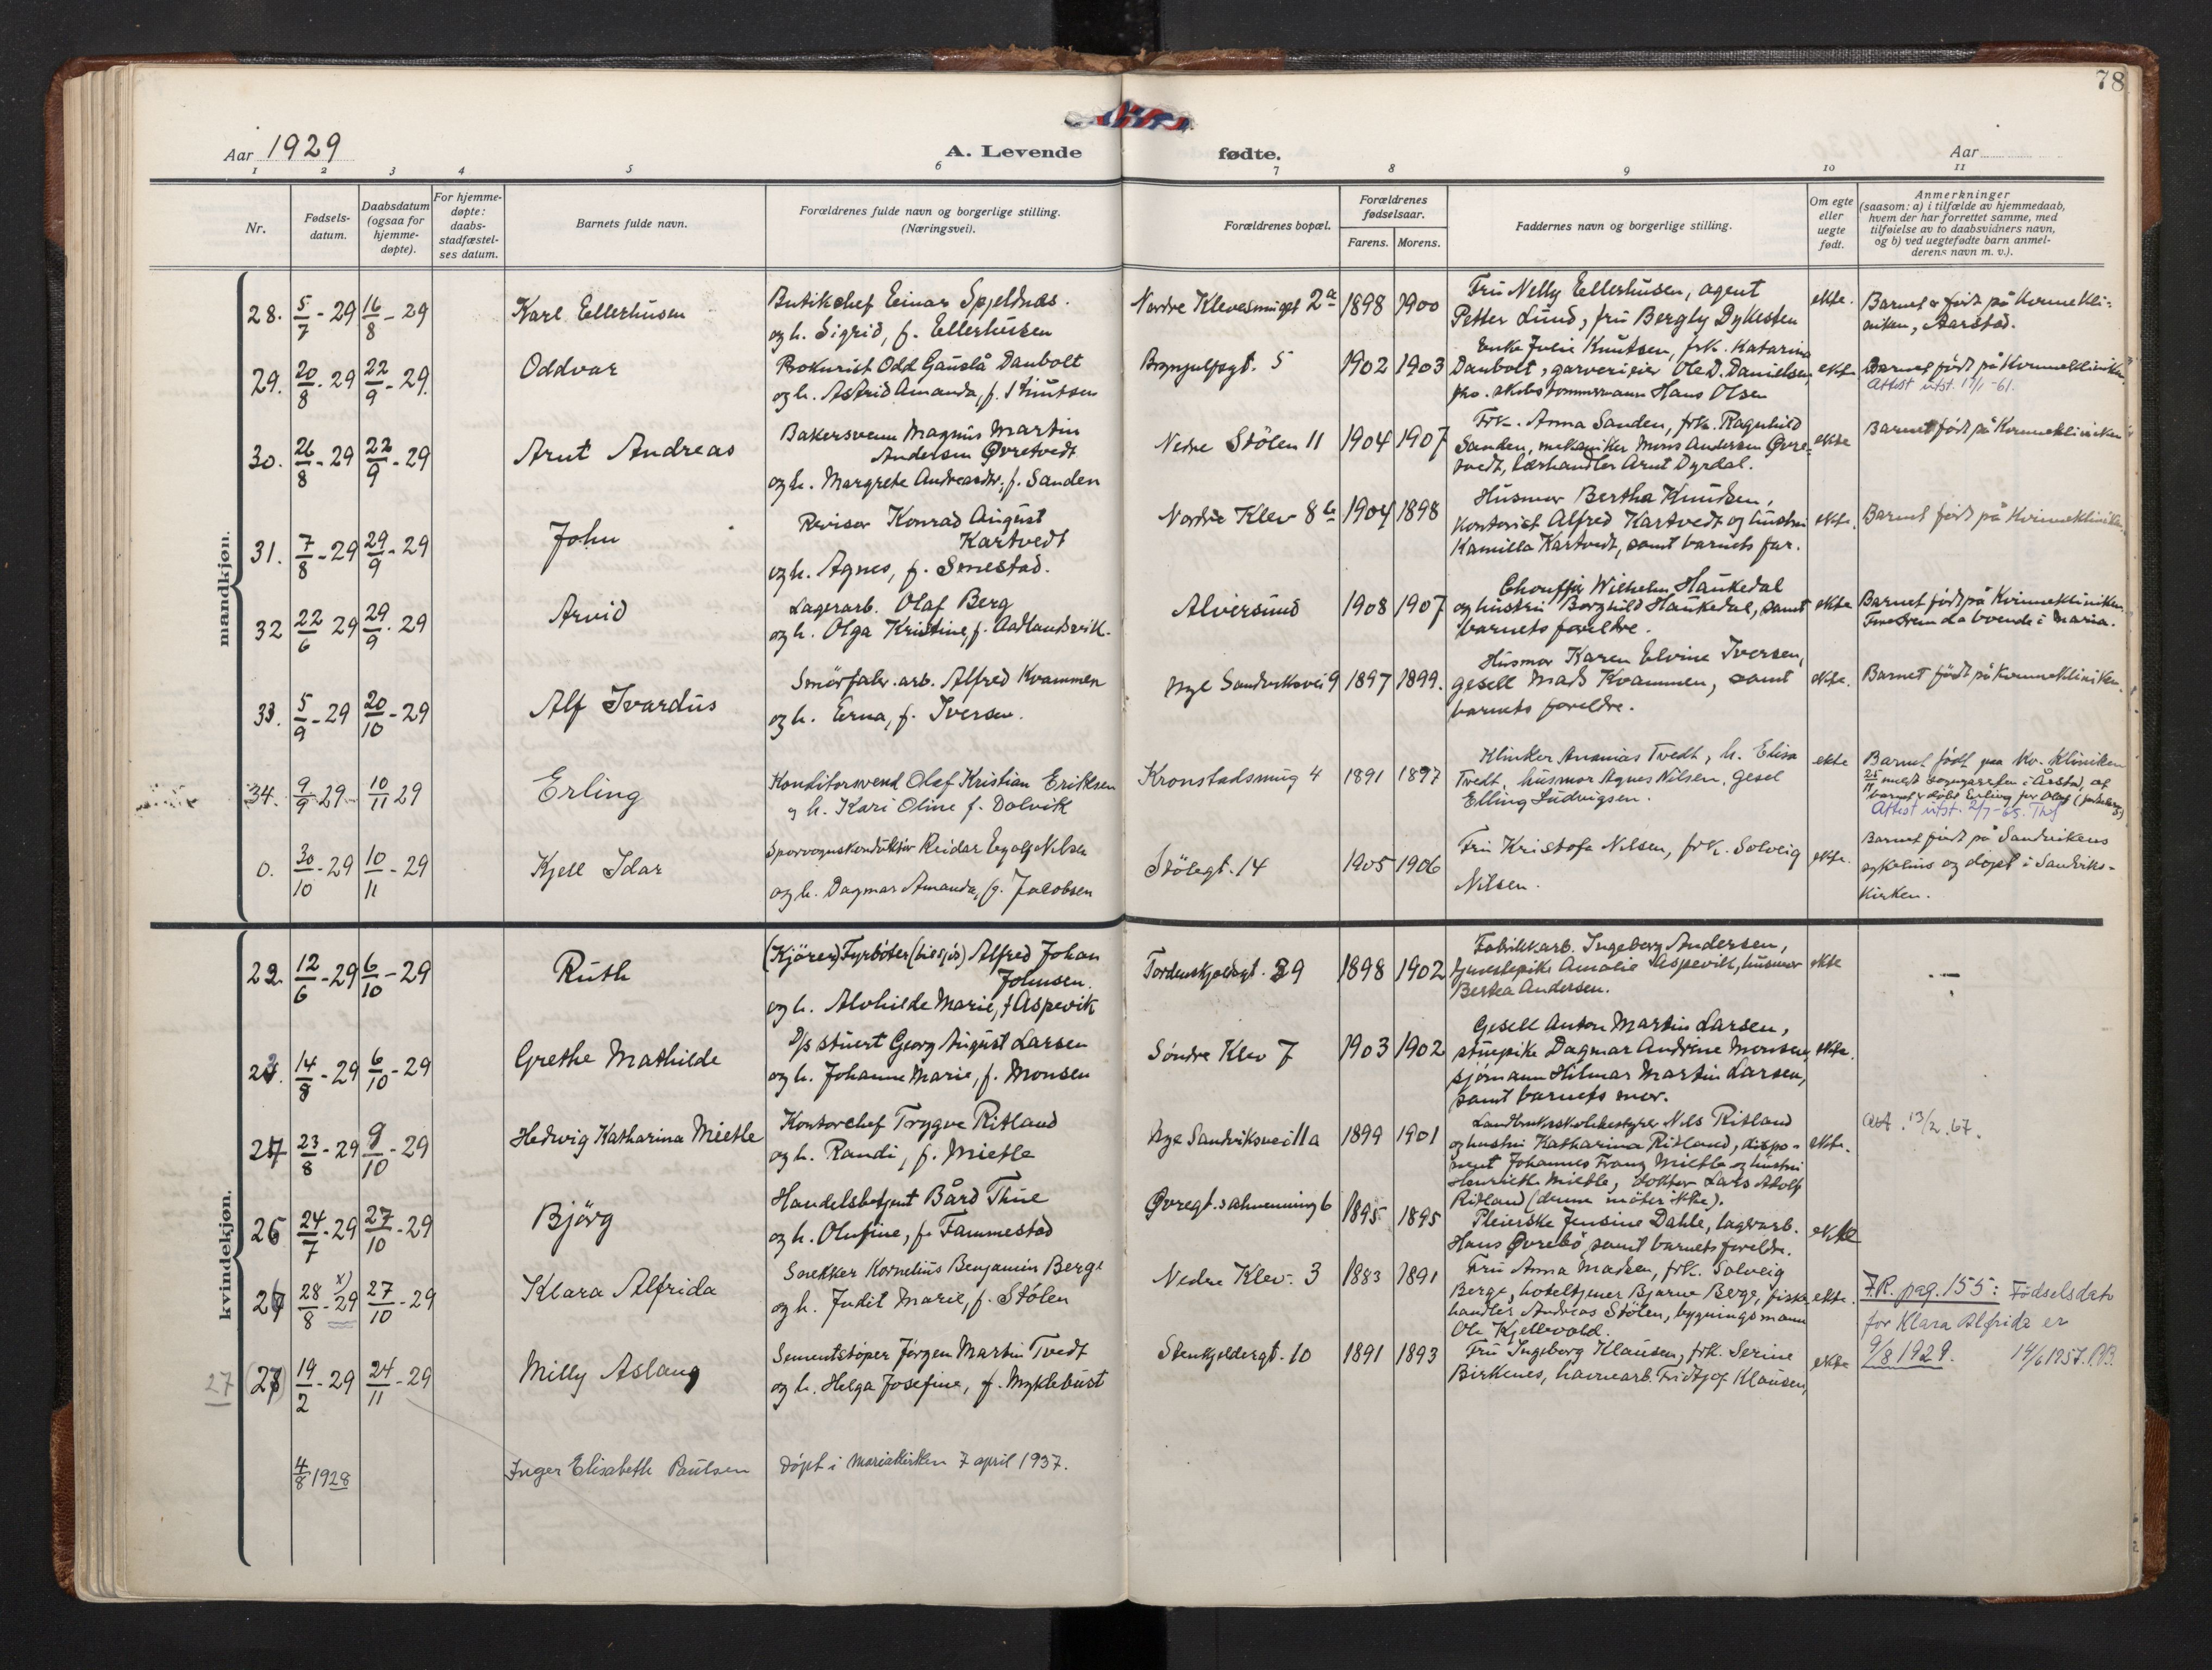 78
Aar 1929
A. Levende fødte.
Aar
1 2 3 4 5 6 7 8 9 10 11
Nr.
Fødsels-
datum.
Daabsdatum
(ogsaa for
hjemme-
døpte).
For hjemme-
døpte:
daabs-
stadfæstel-
ses datum.
Barnets fulde navn.
Forældrenes fulde navn og borgerlige stilling.
(Næringsvei).
Forældrenes bopæl.
Forældrenes
fødselsaar.
Farens. Morens.
Faddernes navn og borgerlige stilling.
Om egte
eller
uegte
født.
Anmerkninger
(saasom: a) i tilfælde av hjemmedaab,
hvem der har forrettet samme, med
tilføielse av to daabsvidners navn,
og b) ved uegtefødte barn anmel-
derens navn m. v.).
mandkjøn.
28. 5/7 - 29 16/8 - 29 Karl Ellerhusen
Butikchef Einar Spjeldnæs.
og h. Sigrid, f. Ellerhusen
Nordre Klevesmuget 2a 1898 1900
Fru Nelly Ellerhusen, agent
Petter Lund, fru Bergly Dykesten
ekte.
Barnet er født på Kvinnekli-
niken, Aarstad.
29. 20/8 - 29 22/9 - 29. Oddvar
Prokurist Odd Gauslå Danbolt
og h. Astrid Amanda, f. Knutsen
Brynjulfsgt. 5 1902 1903
Enke Julie Knutsen, frk. Katarina
Danbolt, garverieier Ole D. Danielsen,
fho. skibstømmermann Hans Olsen
ekte
Barnet født på Kvinnekliniken
Attest utst. 17/1-61.
30. 26/8 - 29 22/9 - 29 Arnt Andreas
Bakersvenn Magnus Martin
Andersen Øvretvedt
og h. Margrete Andreasdtr. f. Sanden
Nedre Stölen 11 1904 1907
Frk. Anna Sanden, frk. Ragnhild
Sanden, mekaniker Mons Andersen Øvre-
tvedt, lærhandler Arnt Dyrdal.
ekte
Barnet født på Kvinnekliniken
31. 7/8 - 29 29/9 - 29 John
Revisor Konrad August
Kartvedt
og h. Agnes, f. Smestad.
Nordre Klev 8b 1904 1898
Husmor Bertha Knudsen,
kontorist Alfred Kartvedt og hustru
Kamilla Kartvedt, samt barnets far.
ekte.
Barnet født på Kvinnekliniken.
32 22/6 29 29/9 - 29 Arvid
Lagerarb. Olaf Berg
og h. Olga Kristine, f. Aadlandsvik.
Alversund 1908 1907
Chauffør Wilhelm Haukedal
og hustru Borghild Haukedal, samt
barnets foreldre.
ekte
Barnet født på Kvinnekliniken.
Foreldrene da boende i Maria.
33. 5/9 - 29 20/10 - 29 Alf Ivardus
Smörfabr. arb. Alfred Kvammen
og h. Erna, f. Iversen.
Nye Sandviksvei 9 1897 1899.
Husmor Karen Elvine Iversen,
gesell Mads Kvammen, samt
barnets foreldre.
ekte.
Barnet født på Kvinnekliniken.
34. 9/9 29 10/11 29 Erling
Konditorsvend Olaf Kristian Eriksen
og h. Kari Oline f. Dalvik
Kronstadsmug 4 1891 1897
Klinker Ananias Tvedt, h. Elisa
Tvedt, husmor Agnes Nilsen, gesel
Elling Ludvigsen.
ekte
Barnet født paa Kv. Kliniken
25/11 meldt sogneprestn i Årstad, at
barnet er døbt Erling for Olaf
Attest utst. 2/7-65.
0. 30/10 - 29 10/11 - 29 Kjell Idar
Sporvognskonduktör Reidar Eyolf Nilsen
og h. Dagmar Amanda, f. Jacobsen
Stölegt. 14 1905 1906
Fru Kristofa Nilsen, frk. Solveig
Nilsen.
ekte.
Barnet født på Sandvikens
sykehus og døpt i Sandviks-
kirken.
kvindekjøn.
22. 12/6 - 29 6/10 - 29 Ruth
(Kjörer) Fyrböter Alfred Johan
Johnsen.
og h. Alvhilde Marie, f. Aspevik
Tordenskjoldsgt. 39 1898 1902
Fabrikkarb. Ingeborg Andersen,
tjenestepike Amalie Aspevik, husmor
Bertea Andersen.
ekte
-
23. 14/8 - 29 6/10 - 29 Grethe Mathilde
D/s stuert Georg August Larsen
og h. Johanne Marie, f. Monsen
Søndre Klev 7 1903 1902
Gesell Anton Martin Larsen,
stuepike Dagmar Andrine Monsen,
sjømann Hilmar Martin Larsen,
samt barnets mor.
ekte.
24 23/8 - 29 9/10 - 29 Hedwig Katharina Mietle
Kontorchef Trygve Ritland
og h. Randi, f. Mietle
Nye Sandviksvei 11a 1899 1901
Landbruksskolebestyrer Nils Ritland
og hustru Katharina Ritland, dispo-
nent Johannes Franz Mietle og hustru
Henriette Mietle, doktor Lars Adolf
Ritland (denne møter ikke).
ekte.
Att. 13/2.67.
25 24/7 - 29 27/10 - 29 Bjørg
Handelsbetjent Bård Thue
og h. Olufine, f. Fammestad
Øvregt. salmenning 6 1895 1895
Pleierske Jensine Dahle, lagerarb.
Hans Øvrebö samt barnets foreldre.
ekte
26 28/8 - 29 x) 27/10 - 29 Klara Alfrida
Snekker Kornelius Benjamin Berge
og h. Judit Marie, f. Stölen
Nedre Klev. 3 1883 1891
Fru Anna Madsen, frk. Solveig
Berge, hoteltjener Bjarne Berge, fiske-
handler Andreas Stölen, bygningsmann
Ole Kjellevold.
ekte.
F.R. pag. 155: Fødselsdato
for Klara Alfrida er
9/8 1929. 14/6 1957.
27 (28) 19/2 - 29 24/11 - 29 Milly Aslaug
Sementstøper Jørgen Martin Tvedt
og h. Helga Josefine, f. Myklebust
Stenkjeldergt. 10 1891 1893
Fru Ingeborg Klausen, frk. Serine
Birkenes, havnearb. Fridtjof Klausen,
ekte
4/8 1928 Inger Elisabeth Paulsen døpt i Mariakirken 7 april 1937.